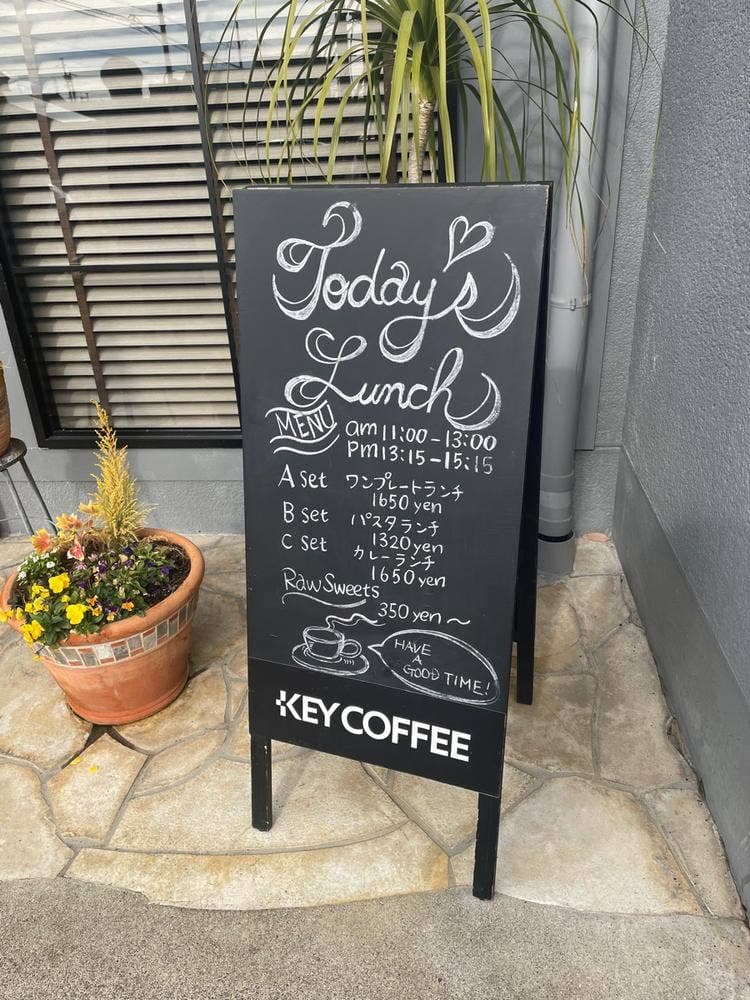 Today's
Lunch
MENU
am 11:00-13:00
Pm 13:15-15:15
A set ワンプレートランチ
1650 yen
B set パスタランチ
1320 yen
C set カレーランチ
1650 yen
Raw Sweets
350 yen ～
HAVE
A
GOOD TIME!
KEY COFFEE